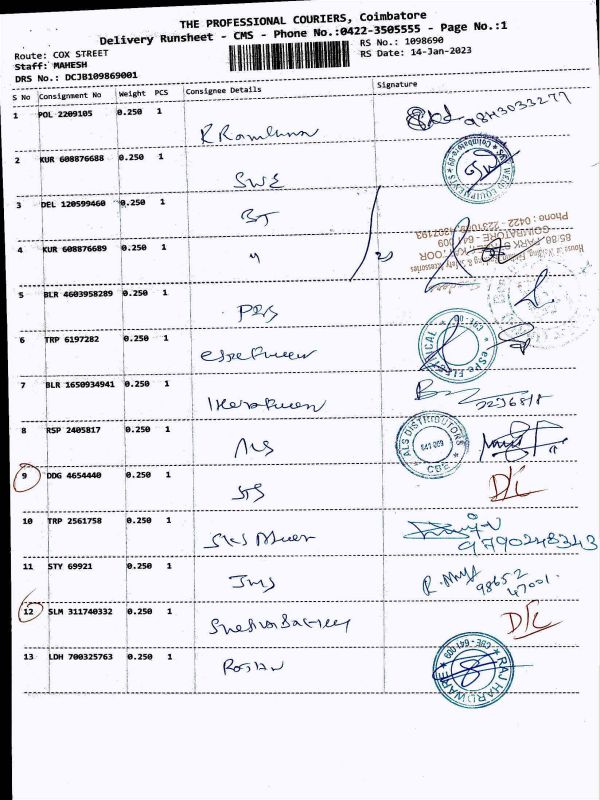 THE PROFESSIONAL COURIERS, Coimbatore
Delivery Runsheet - CMS - Phone No.:0422-3505555 - Page No.:1
Route: COX STREET RS No.: 1098690
Staff: MAHESH RS Date: 14-Jan-2023
DRS No.: DCJB109869001
S No Consignment No Weight PCS Consignee Details Signature
1 POL 2209105 0.250 1
2 KUR 608876688 0.250 1 SWE
3 DEL 120599460 0.250 1 BT
4 KUR 608876689 0.250 1 "
Phone : 0422 -
COIMBATORE - 641 009
5 BLR 4603958289 0.250 1
6 TRP 6197282 0.250 1
eSPe ELECTRICAL
7 BLR 1650934941 0.250 1
8 RSP 2405817 0.250 1 ALS
ALS DISTRIBUTORS
641 009
CBE
9 DDG 4654440 0.250 1 STS D/L
10 TRP 2561758 0.250 1
9790248343
11 STY 69921 0.250 1 JMS
98652
47001
12 SLM 311740332 0.250 1 D/L
13 LDH 700325763 0.250 1 Roshan
RAJ HARDWARE
CBE - 641 009